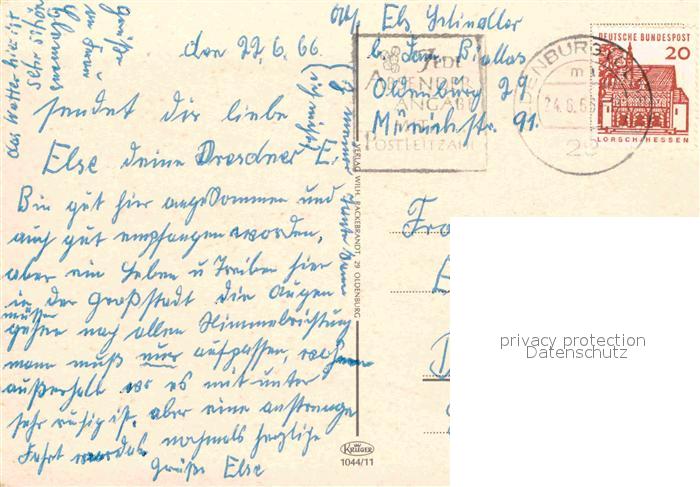 Abs. Els Schindler
b. Jan Biallas
Oldenburg 29
Münichstr. 91.
den 22.6.66.
sendet dir liebe
Else deine Dresdner E.
Bin gut hier angekommen und
auch gut empfangen worden,
aber ein Leben u Treiben hier
in der Großstadt die Augen
müssen
gehen nach allen Himmelsrichtung
man muß nur aufpassen,
außerhalb wo es mitunter
sehr ruhig ist. aber eine anstrenge
Fahrt war das. nochmals herzliche
Grüße Else
das Wetter hier ist
sehr schön
Grüße
JEDE
ABSENDER
ANGABE
MIT
POSTLEITZAHL
OLDENBURG
24.6.66
29
DEUTSCHE BUNDESPOST
20
LORSCH/HESSEN
VERLAG WILH. BACKEBRANDT, 29 OLDENBURG
KRÜGER
1044/11
privacy protection
Datenschutz